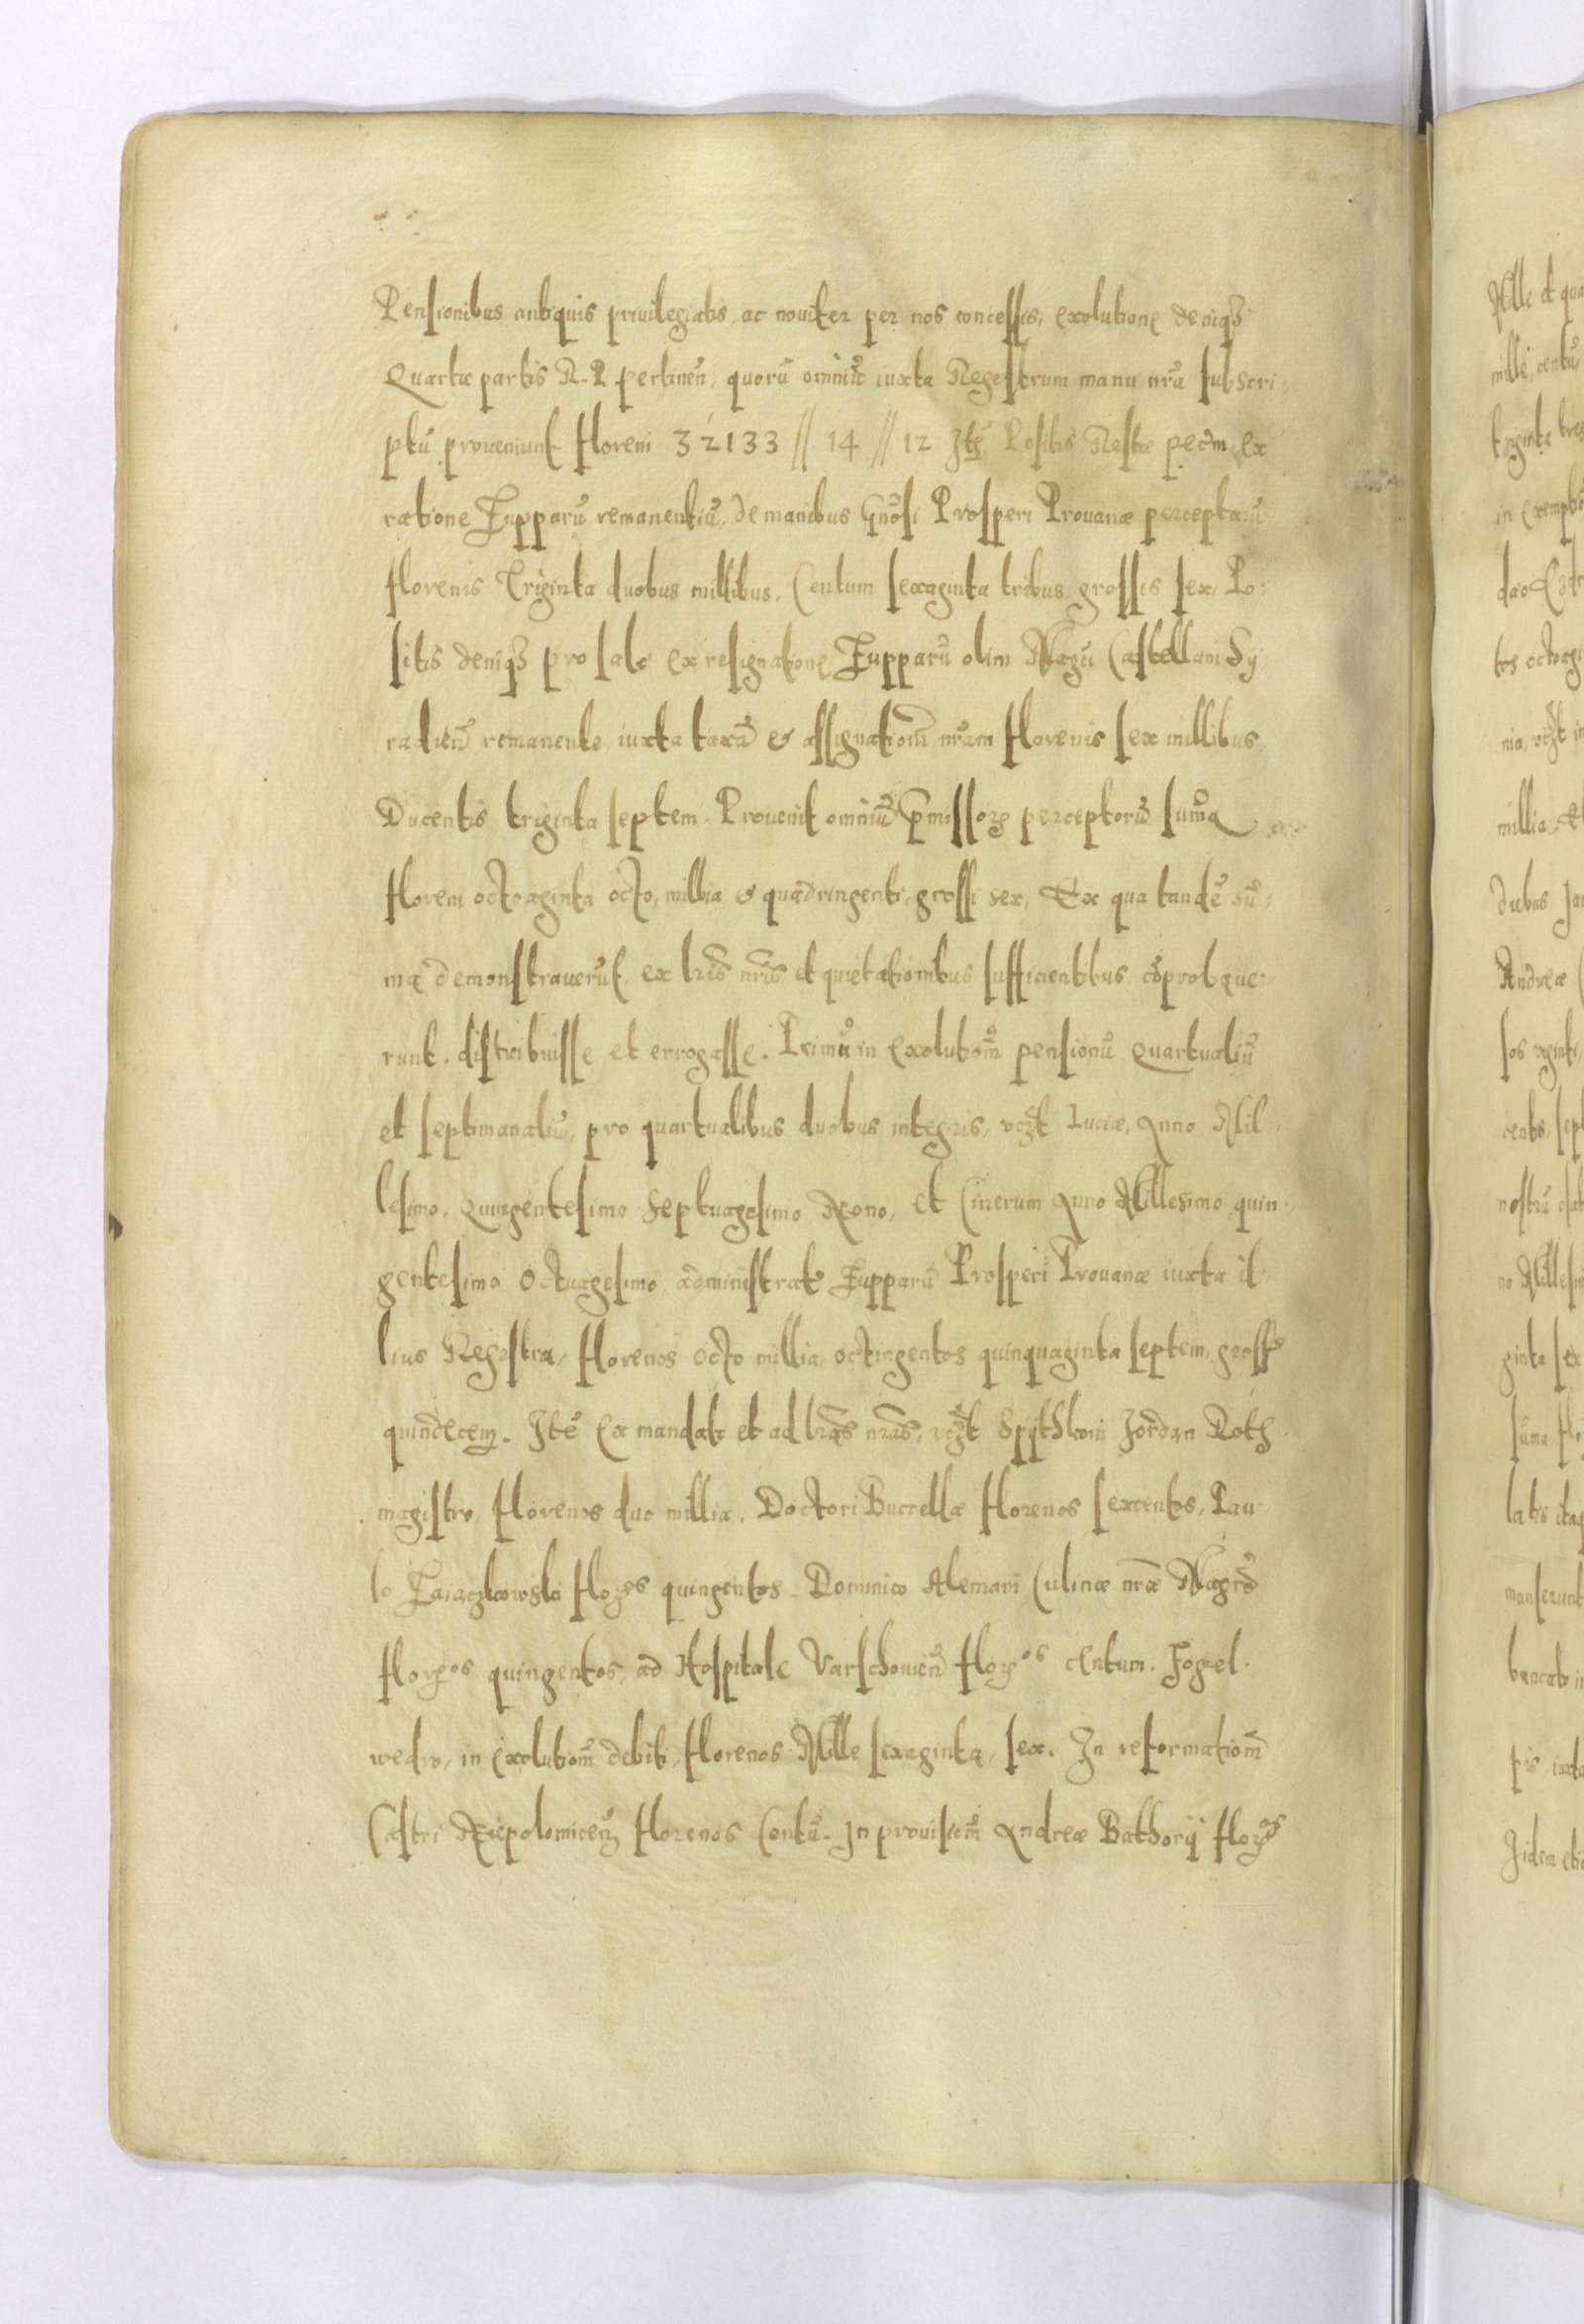 Pensionibus antiquis priuilegiatis, ac nouiter per nos concessis, exolutione deniqȝ
Quartæ partis R. P. pertineñ, quorū omniū iuxta Regestrum manu nrā subscri-
ptū proueniunt floreni 32133 // 14 // 12 Itē Positis Restæ pecūn ex
ratione Zupparū remanentiū, de manibus Gnōsi Prosperi Prouanæ perceptarū
florenis Triginta duobus millibus, Centum sexaginta tribus, grossis sex, Po-
sitis deniqȝ pro sale ex resignatione Zupparū olim Magci Castellani Sy-
radieñ remanente, iuxta taxā & assignationē nrām florenis sex millibus
Ducentis triginta septem. Prouenit omniū pmissorȝ perceptorū sum̄a
floreni octoaginta octo, millia & quadringenti, grossi sex, Ex qua tandē sū-
ma demonstrauerūt, ex lrīs nrīs, et quietationibus sufficientibus cōprobaue-
runt, distribuisse et errogasse. Primū in Exolutionē pensionū Quartualiū
et septimanaliū, pro quartualibus duobus integris, vcȝt Luciæ, Anno Mil-
lesimo, Quingentesimo Septuagesimo Nono, et Cinerum Anno Millesimo quin-
gentesimo Octuagesimo administrat Zupparū Prosperi Prouanæ iuxta il-
lius Regestra, florenos octo millia, octingentos quinquaginta septem, gross
quindecem. Itē Ex mandato et ad lrās nrās, vcȝt Spythkoni Jordan Roth
magistro florenos duo millia, Doctori Buccellæ florenos sexcentos, Pau-
lo Zaiaczkowski florȝos quingentos. Dominico Alemani Culinæ nrǣ Magrō
florȝos quingentos, ad Hospitale Varschouieñ florȝos centum. Fogel-
wedro, in Exolutionē debiti, florenos Mille sexaginta, sex. In reformationē
Castri Niepolomiceñ florenos Centū. In prouisionē Andreæ Bathorij florȝos